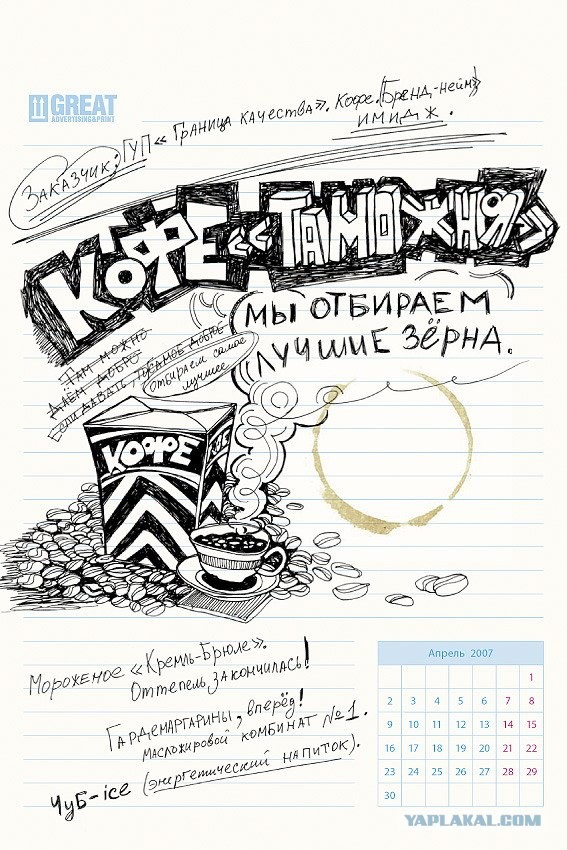 GREAT
ADVERTISING&PRINT
Заказчик: ГУП «Граница качества». Кофе. «Бренд-нейм»
ИМИДЖ.
КОФЕ «ТАМОЖНЯ»
МЫ ОТБИРАЕМ
ЛУЧШИЕ ЗЁРНА.
ТАМ МОЖНО
ДАЁМ ДОБРО
ЕСЛИ ДАВАТЬ, ТО САМОЕ ДОБРОЕ
Отбираем самое
лучшее
КОФЕ
КОФЕ
Мороженое «Кремль-Брюле».
Оттепель закончилась!
Гардемаргарины, вперёд!
Масложировой комбинат №1.
ЧуБ-ice (энергетический напиток).
Апрель 2007
1
2 3 4 5 6 7 8
9 10 11 12 13 14 15
16 17 18 19 20 21 22
23 24 25 26 27 28 29
30
YAPLAKAL.COM